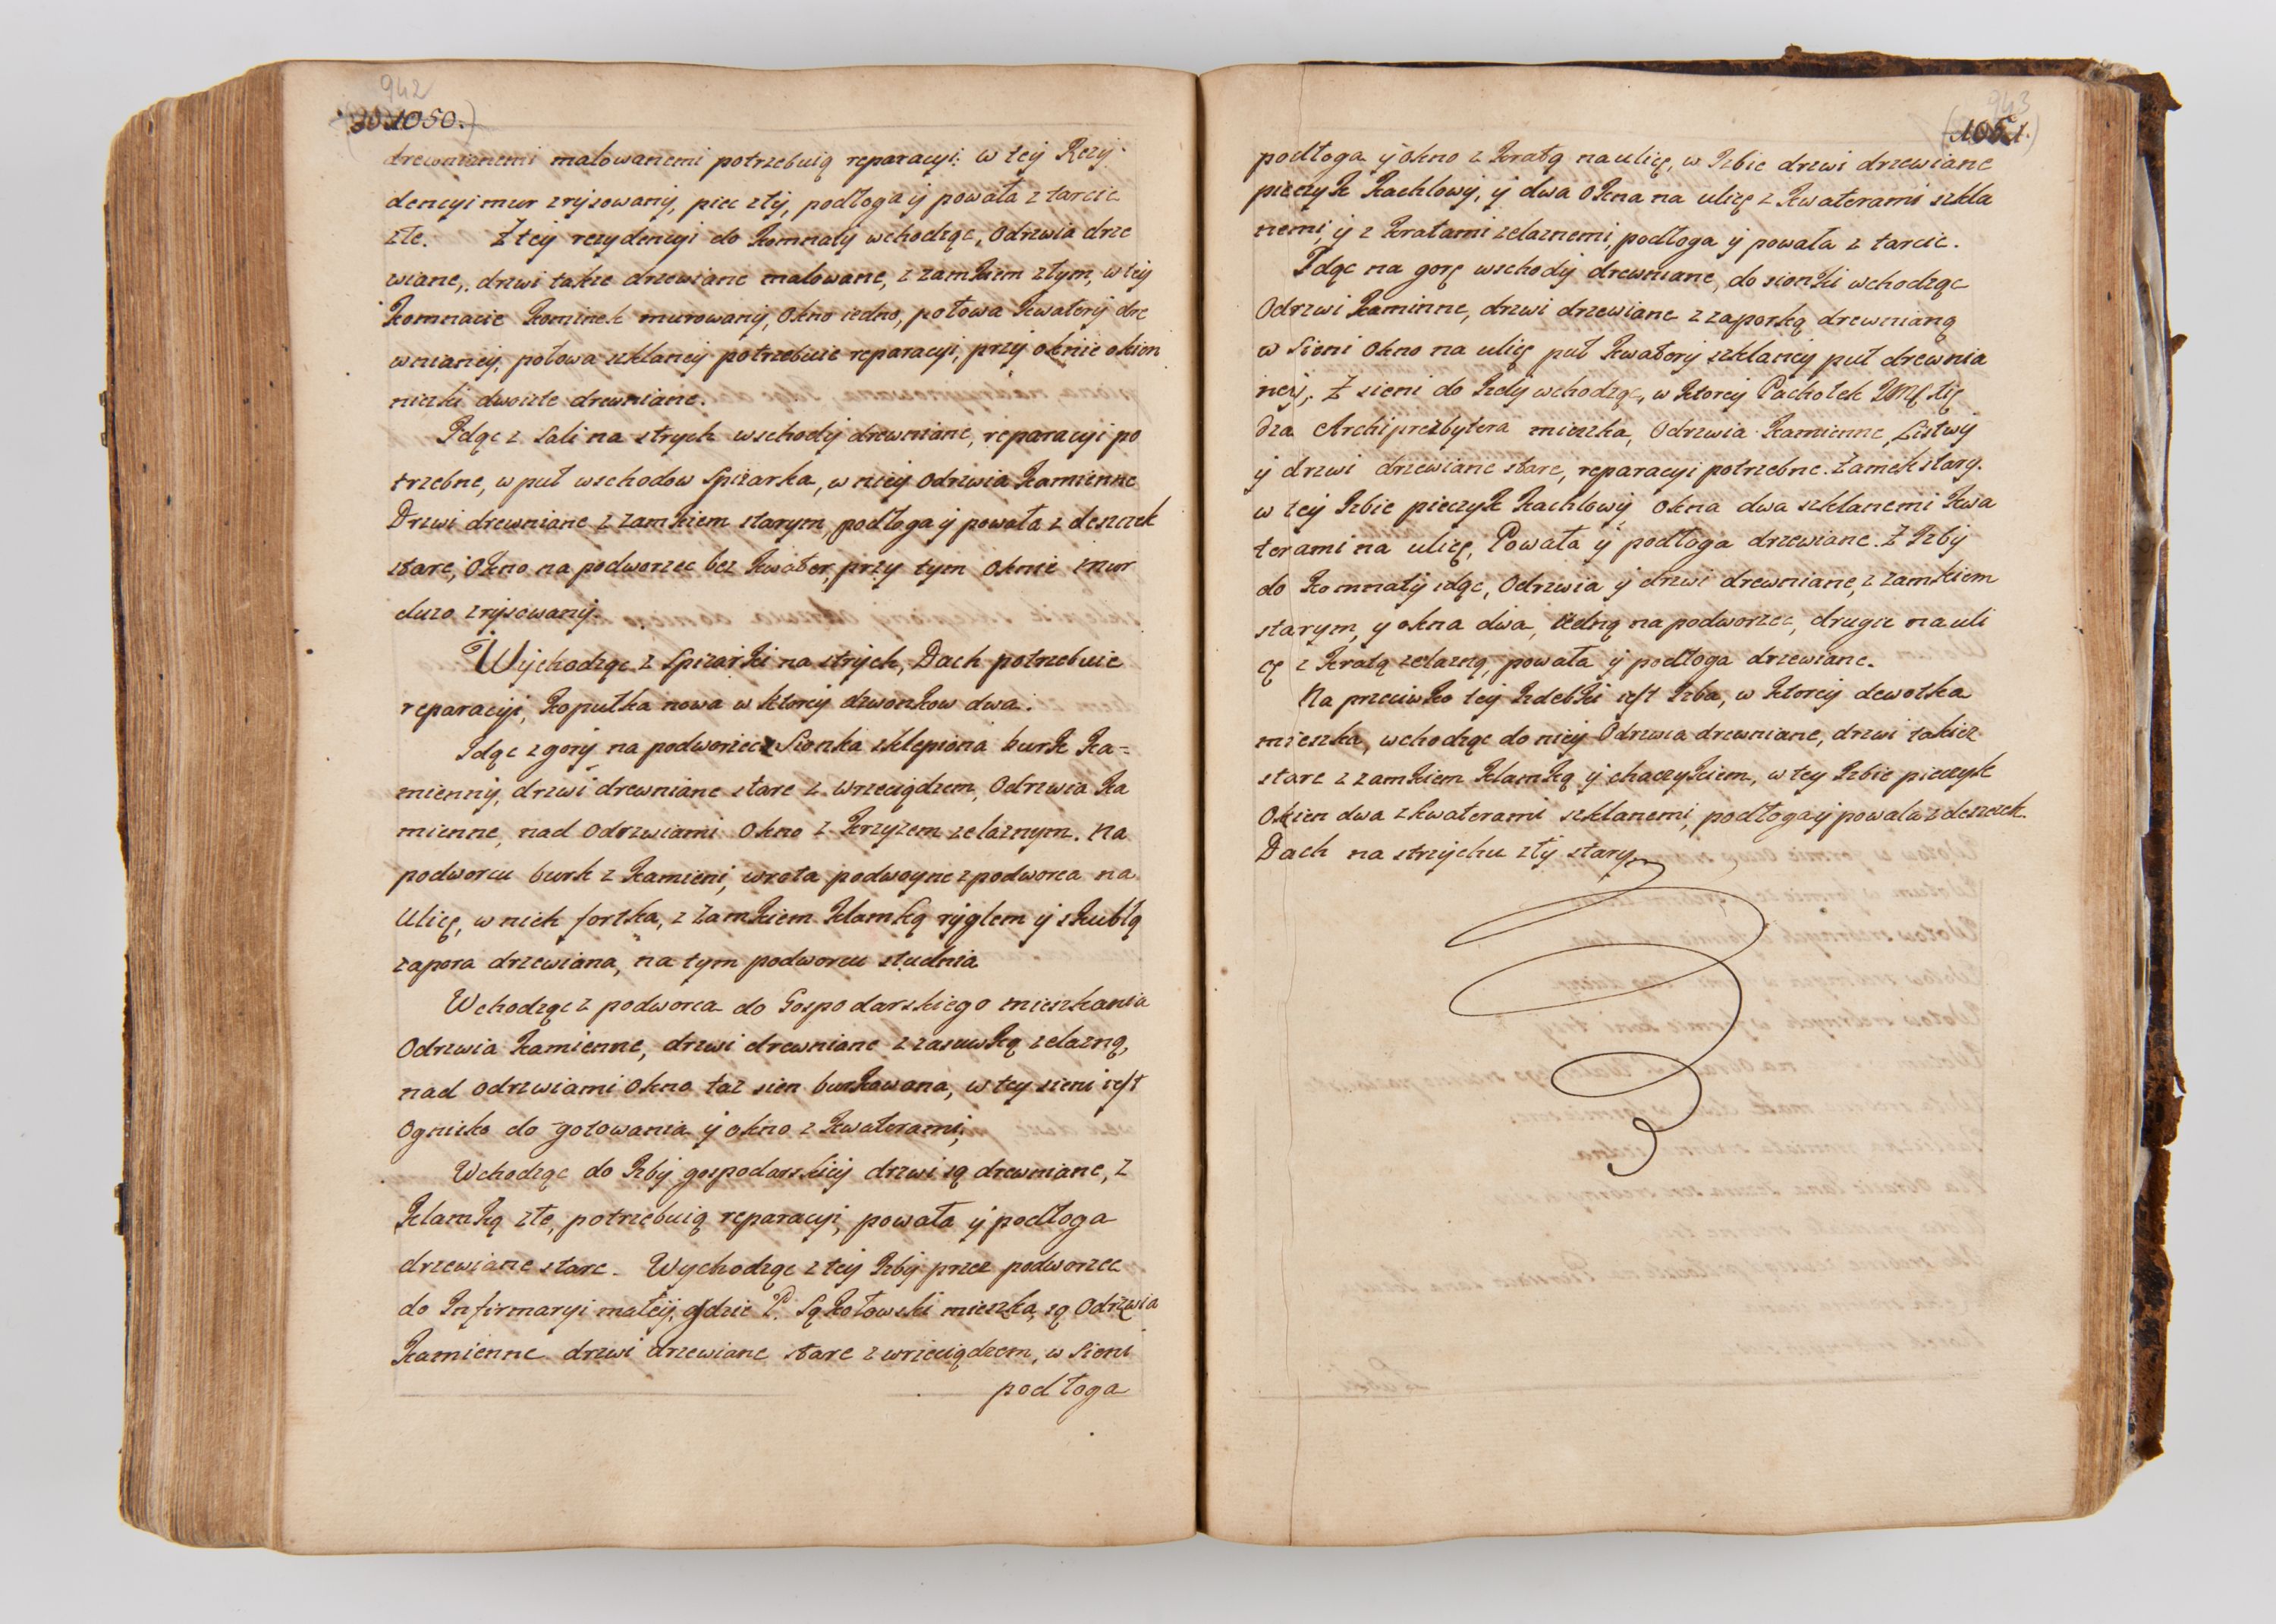 942
1050.)
drewnianemi malowanemi potrzebuią reparacyi: w tey Rezy
dencyi mur zrysowany, piec zły, podłoga y powała z tarcic
złe. Z tey rezydencyi do komnaty wchodząc, Odrzwia drze
wiane, drzwi takze drzewiane malowane, z zamkiem złym, w tey
komnacie kominek murowany, Okno iedno, połowa kwatery dre
wnianey, połowa szklaney potrzebuie reparacyi, przy oknie okien
niczki dwoiste drewniane.
Idąc z Sali na strych wschody drewniane, reparacyi po
trzebne, w puł wschodow Spizarka, w niey Odrzwia kamienne
Drzwi drewniane z zamkiem starym, podłoga y powała z desczek
stare, Okno na podworzec bez kwater, przy tym Oknie mur
duzo zrysowany.
Wychodząc z Spizarki na strych, Dach potrzebuie
reparacyi, kopułka nowa w ktorey dzwonkow dwa.
Idąc z gory na podworiec Sionka sklepiona burk ka=
mienny, drzwi drewniane stare z wrzeciądzem, Odrzwia ka
mienne, nad Odrzwiami Okno z krzyzem zelaznym. Na
podworcu burk z kamieni, wrota podwoyne z podworca na
Ulicę, w nich fortka, z zamkiem klamką ryglem y skublą
zapora drzewiana, na tym podworcu studnia
Wchodząc z podworca do Gospodarskiego mieszkania
Odrzwia kamienne, drzwi drewniane z zasuwką zelazną,
nad odrzwiami Okno taz sien burkowana, w tey sieni iest
Ognisko do gotowania y okno z kwaterami,
Wchodząc do Izby gospodarskiey drzwi są drewniane, z
klamką złe, potrzebuią reparacyi, powała y podłoga
drzewiane stare. Wychodząc z tey Izby przez podworzec
do Infirmaryi małey, gdzie P. Sąkołowski mieszka, są Odrzwia
kamienne drzwi drzewiane stare z wrzeciądzem, w Sieni
podłoga
943
(1051.)
podłoga y okno z kratą na ulicę, w Izbie drzwi drzewiane
pieczyk kachlowy, y dwa Okna na ulicę z kwaterami szkla
nemi, y z kratami zelaznemi, podłoga y powała z tarcic.
Idąc na gorę wschody drewniane, do sionki wchodząc
Odrzwi kaminne, drzwi drzewiane z zaporką drewnianą
w Sieni Okno na ulicę puł kwatery szklaney puł drewnia
ney, Z sieni do Izdy wchodząc, w ktorey Pachołek Xię
dza Archiprezbytera mieszka, Odrzwia kamienne, Listwy
y drzwi drzewiane stare, reparacyi potrzebne. Zamek stary.
w tey Izbie pieczyk kachlowy Okna dwa szklanemi kwa
terami na ulicę, Powała y podłoga drzewiane. Z Izby
do komnaty idąc, Odrzwia y drzwi drewniane, z zamkiem
starym, y okna dwa, iedną na podworzec, drugie na uli
cę z kratą zelazną, powała y podłoga drzewiane.
Na przeciwko tey Izdebki iest Izba, w ktorey dewotka
mieszka, wchodząc do niey Odrzwia drewniane, drzwi takiez
stare z zamkiem klamką y chaczykiem, w tey Izbie pieczyk
Okien dwa z kwaterami szklanemi, podłoga y powała z desczek.
Dach na strychu zły stary